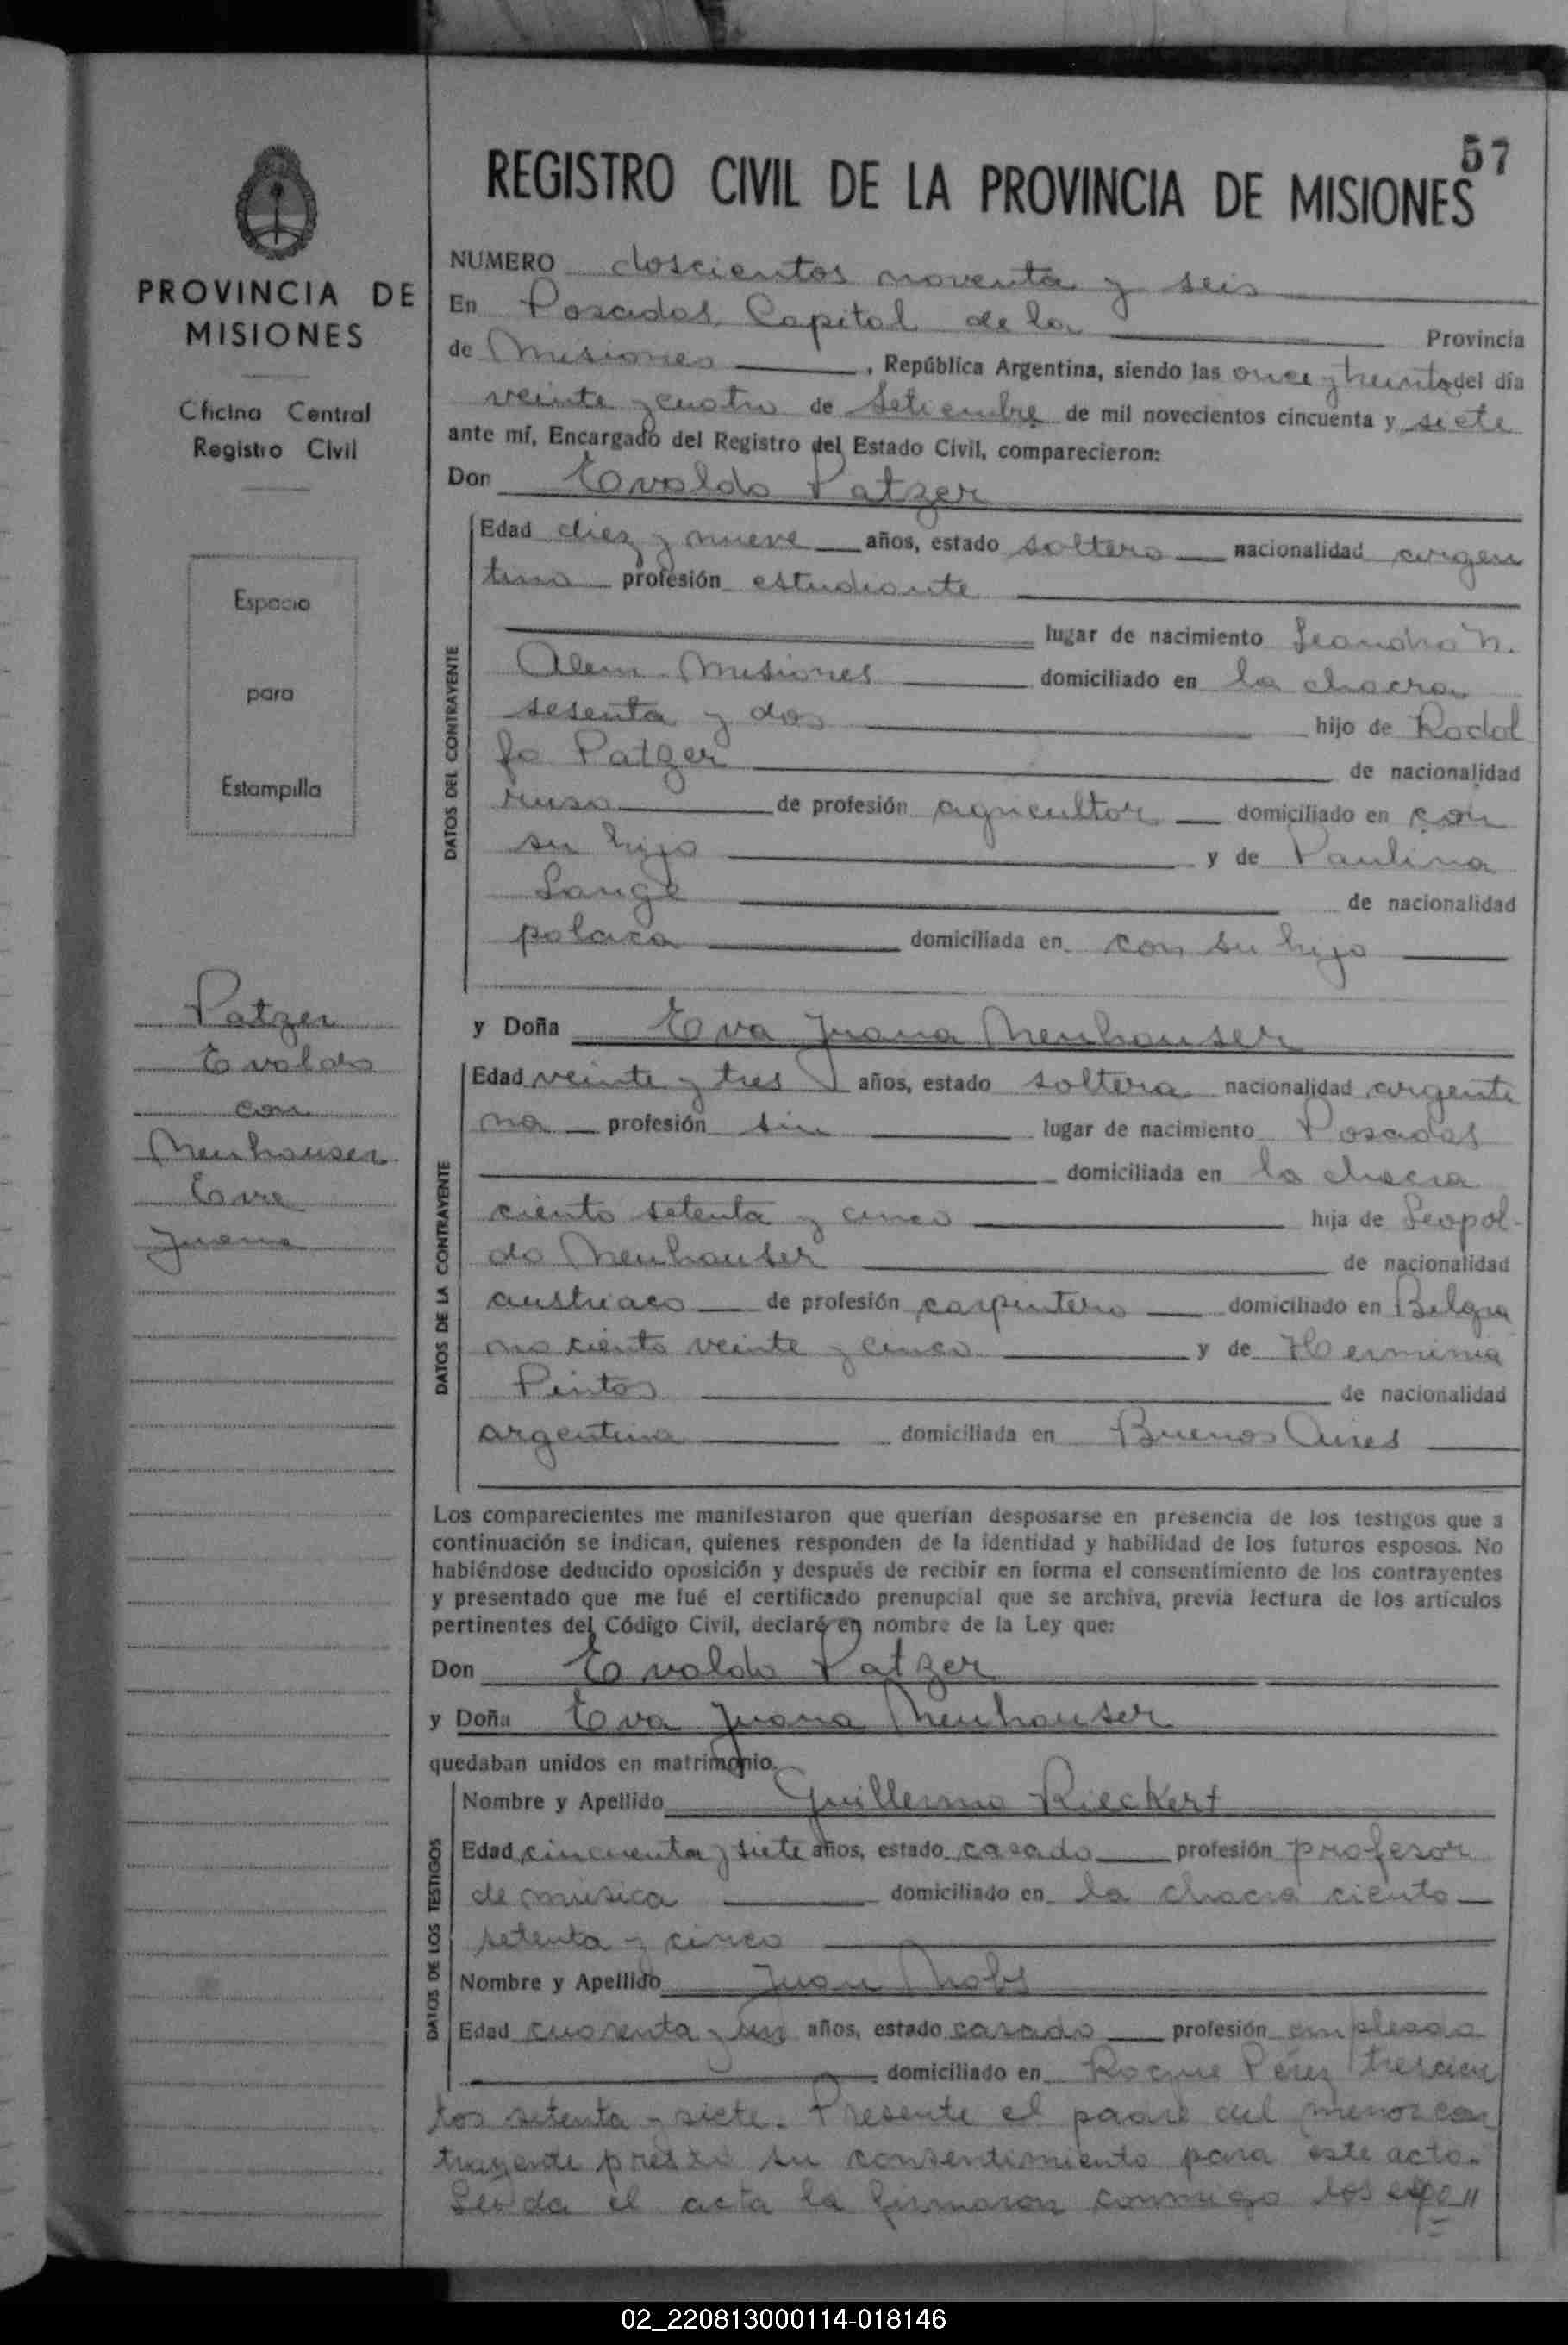 57
REGISTRO CIVIL DE LA PROVINCIA DE MISIONES
PROVINCIA DE
MISIONES
Oficina Central
Registro Civil
Espacio
para
Estampilla
Patzer
Evaldo
con
Neuhauser
Eva
Juana
NUMERO doscientos noventa y seis
En Posadas, Capital de la Provincia
de Misiones, República Argentina, siendo las once y treinta del día
veinte y cuatro de Setiembre de mil novecientos cincuenta y siete
ante mí, Encargado del Registro del Estado Civil, comparecieron:
Don Evaldo Patzer
DATOS DEL CONTRAYENTE
Edad diez y nueve años, estado soltero nacionalidad argen
tino profesión estudiante
lugar de nacimiento Leandro N.
Alem Misiones domiciliado en la chacra
sesenta y dos hijo de Rodol
fo Patzer de nacionalidad
ruso de profesión agricultor domiciliado en con
su hijo y de Paulina
Lange de nacionalidad
polaca domiciliada en con su hijo
y Doña Eva Juana Neuhauser
DATOS DE LA CONTRAYENTE
Edad veinte y tres años, estado soltera nacionalidad argenti
na profesión sin lugar de nacimiento Posadas
domiciliada en la chacra
ciento setenta y cinco hija de Leopol-
do Neuhauser de nacionalidad
austriaco de profesión carpintero domiciliado en Belgra
no ciento veinte y cinco y de Herminia
Pintos de nacionalidad
argentina domiciliada en Buenos Aires
Los comparecientes me manifestaron que querían desposarse en presencia de los testigos que a
continuación se indican, quienes responden de la identidad y habilidad de los futuros esposos. No
habiéndose deducido oposición y después de recibir en forma el consentimiento de los contrayentes
y presentado que me fué el certificado prenupcial que se archiva, previa lectura de los artículos
pertinentes del Código Civil, declaré en nombre de la Ley que:
Don Evaldo Patzer
y Doña Eva Juana Neuhauser
quedaban unidos en matrimonio.
DATOS DE LOS TESTIGOS
Nombre y Apellido Guillermo Rieckert
Edad cincuenta y siete años, estado casado profesión profesor
de música domiciliado en la chacra ciento
setenta y cinco
Nombre y Apellido Juan
Edad cuarenta y un años, estado casado profesión empleado
domiciliado en Roque Pérez trescien
tos setenta y siete. Presente el padre del menor con
trayente prestó su consentimiento para este acto.
Leída el acta la firmaron conmigo los
02_220813000114-018146